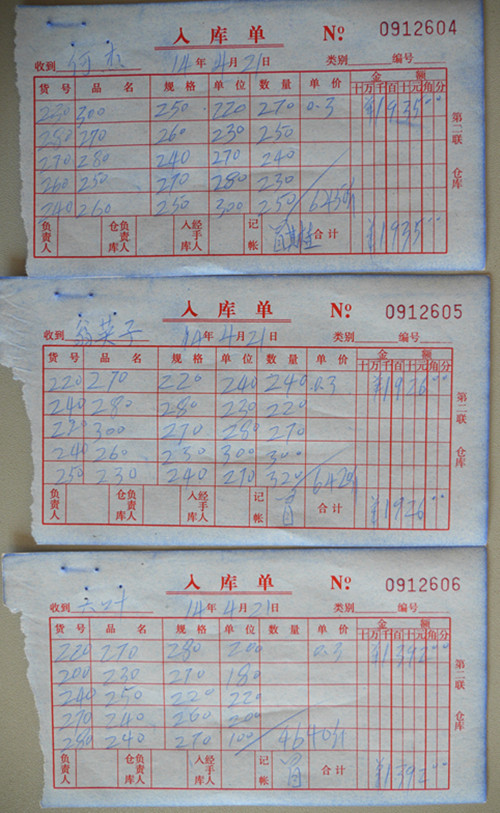 入库单 № 0912604
收到 何 14年4月21日 类别 编号
货号 品名 规格 单位 数量 单价 金额
十万千百十元角分
230 300 250 220 270 0.3 ¥193500
280 270 260 230 250
270 280 240 270 240
260 250 270 280 230
240 260 250 300 250 / 6450个
负责人 仓库负责人 入库经手人 记帐 肖 合计 ¥193500
第二联 仓库
入库单 № 0912605
收到 翁英子 14年4月21日 类别 编号
货号 品名 规格 单位 数量 单价 金额
十万千百十元角分
220 270 220 240 240 0.3 ¥192600
240 280 280 230 220
220 300 270 280 270
240 260 230 300 300
250 230 240 270 320 / 6420个
负责人 仓库负责人 入库经手人 记帐 肖 合计 ¥192600
第二联 仓库
入库单 № 0912606
收到 六叶 14年4月21日 类别 编号
货号 品名 规格 单位 数量 单价 金额
十万千百十元角分
220 270 280 200 0.3 ¥139200
200 230 270 180
240 250 220 220
270 240 260 200
280 240 270 100 / 4640个
负责人 仓库负责人 入库经手人 记帐 肖 合计 ¥139200
第二联 仓库